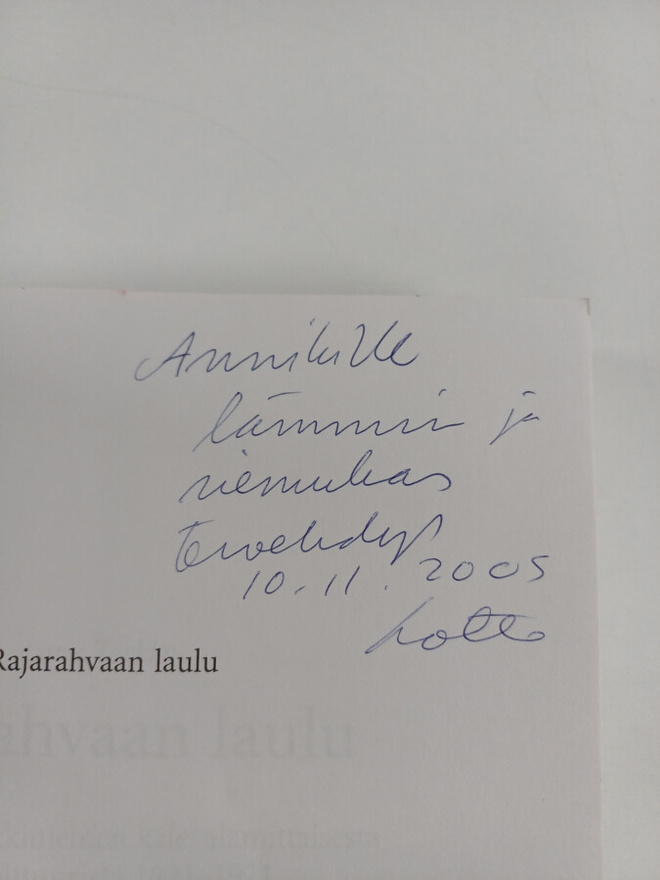 Annikille
lämmin ja
riemukas
tervehdys
10.11.2005
Lotte
Rajarahvaan laulu
ahvaan laulu